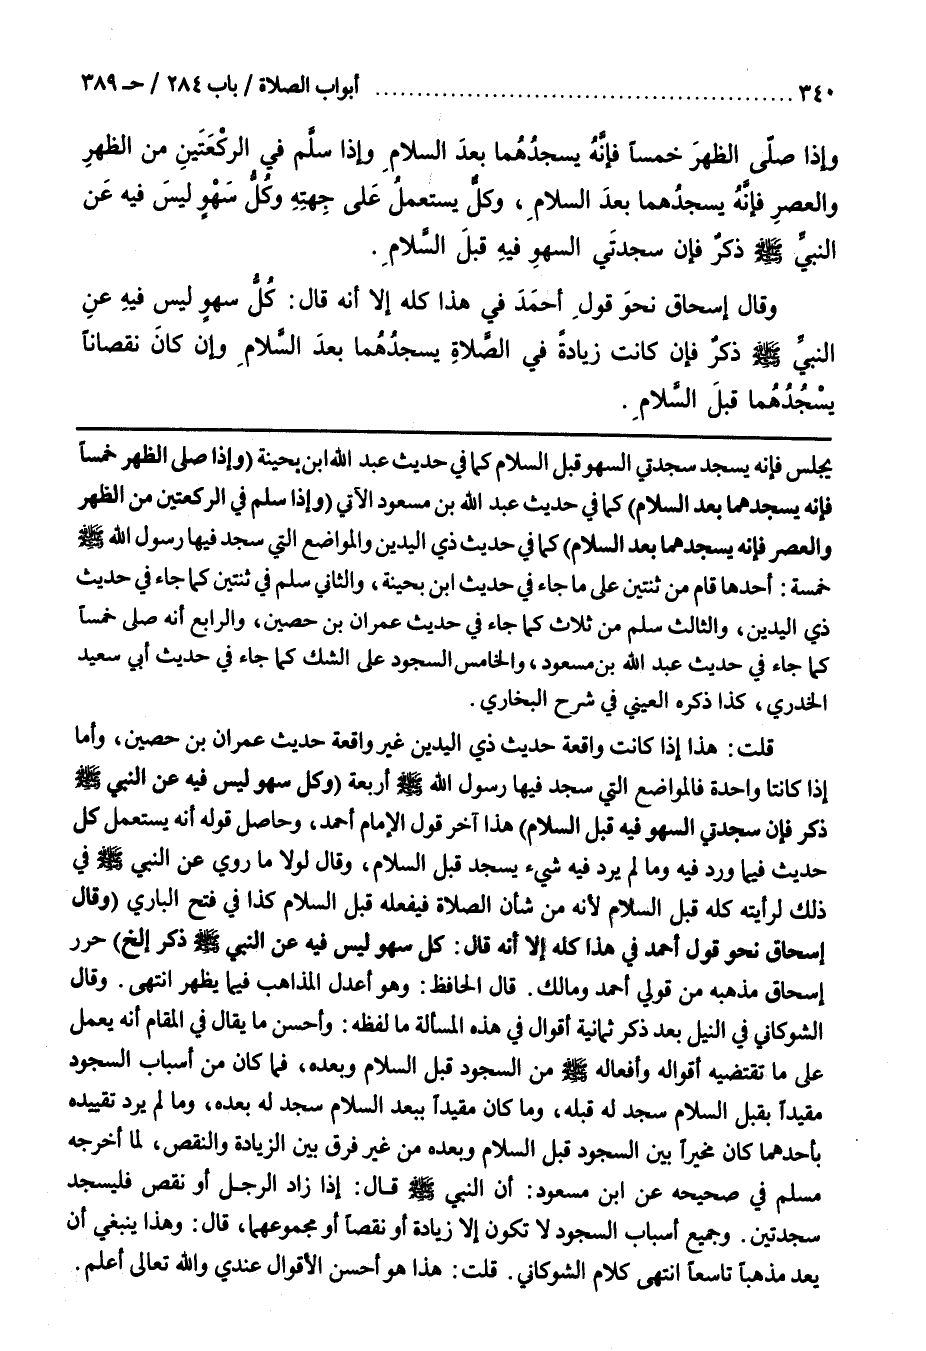 ٣٤٠ ........................................ أبواب الصلاة / باب ٢٨٤ / حـ ٣٨٩
وإذا صلّى الظهرَ خمساً فإنَّهُ يسجدُهُما بعدَ السلامِ وإذا سلَّم في الركْعَتَينِ من الظهرِ
والعصرِ فإنَّهُ يسجدُهما بعدَ السلامِ ، وكلٌّ يستعملُ عَلى جِهتِهِ وكُلُّ سَهْوٍ ليسَ فيه عَن
النبيِّ ﷺ ذكرٌ فإن سجدتَي السهوِ فيهِ قبلَ السَّلامِ .
وقال إسحاق نحوَ قولِ أحمَدَ في هذا كله إلا أنه قال: كُلُّ سهوٍ ليس فيهِ عنِ
النبيِّ ﷺ ذكرٌ فإن كانت زيادةً في الصَّلاةِ يسجدُهُما بعدَ السَّلامِ وإن كانَ نقصاناً
يسْجُدُهُما قبلَ السَّلامِ .
يجلس فإنه يسجد سجدتي السهو قبل السلام كما في حديث عبد الله ابن بحينة (وإذا صلى الظهر خمساً
فإنه يسجدهما بعد السلام) كما في حديث عبد الله بن مسعود الآتي (وإذا سلم في الركعتين من الظهر
والعصر فإنه يسجدهما بعد السلام) كما في حديث ذي اليدين والمواضع التي سجد فيها رسول الله ﷺ
خمسة: أحدها قام من ثنتين على ما جاء في حديث ابن بحينة، والثاني سلم في ثنتين كما جاء في حديث
ذي اليدين، والثالث سلم من ثلاث كما جاء في حديث عمران بن حصين، والرابع أنه صلى خمساً
كما جاء في حديث عبد الله بن مسعود، والخامس السجود على الشك كما جاء في حديث أبي سعيد
الخدري، كذا ذكره العيني في شرح البخاري.
قلت: هذا إذا كانت واقعة حديث ذي اليدين غير واقعة حديث عمران بن حصين، وأما
إذا كانتا واحدة فالمواضع التي سجد فيها رسول الله ﷺ أربعة (وكل سهو ليس فيه عن النبي ﷺ
ذكر فإن سجدتي السهو فيه قبل السلام) هذا آخر قول الإمام أحمد، وحاصل قوله أنه يستعمل كل
حديث فيما ورد فيه وما لم يرد فيه شيء يسجد قبل السلام، وقال لولا ما روي عن النبي ﷺ في
ذلك لرأيته كله قبل السلام لأنه من شأن الصلاة فيفعله قبل السلام كذا في فتح الباري (وقال
إسحاق نحو قول أحمد في هذا كله إلا أنه قال: كل سهو ليس فيه عن النبي ﷺ ذكر إلخ) حرر
إسحاق مذهبه من قولي أحمد ومالك. قال الحافظ: وهو أعدل المذاهب فيما يظهر انتهى. وقال
الشوكاني في النيل بعد ذكر ثمانية أقوال في هذه المسألة ما لفظه: وأحسن ما يقال في المقام أنه يعمل
على ما تقتضيه أقواله وأفعاله ﷺ من السجود قبل السلام وبعده، فما كان من أسباب السجود
مقيداً بقبل السلام سجد له قبله، وما كان مقيداً ببعد السلام سجد له بعده، وما لم يرد تقييده
بأحدهما كان مخيراً بين السجود قبل السلام وبعده من غير فرق بين الزيادة والنقص، لما أخرجه
مسلم في صحيحه عن ابن مسعود: أن النبي ﷺ قال: إذا زاد الرجل أو نقص فليسجد
سجدتين. وجميع أسباب السجود لا تكون إلا زيادة أو نقصاً أو مجموعهما، قال: وهذا ينبغي أن
يعد مذهباً تاسعاً انتهى كلام الشوكاني. قلت: هذا هو أحسن الأقوال عندي والله تعالى أعلم.